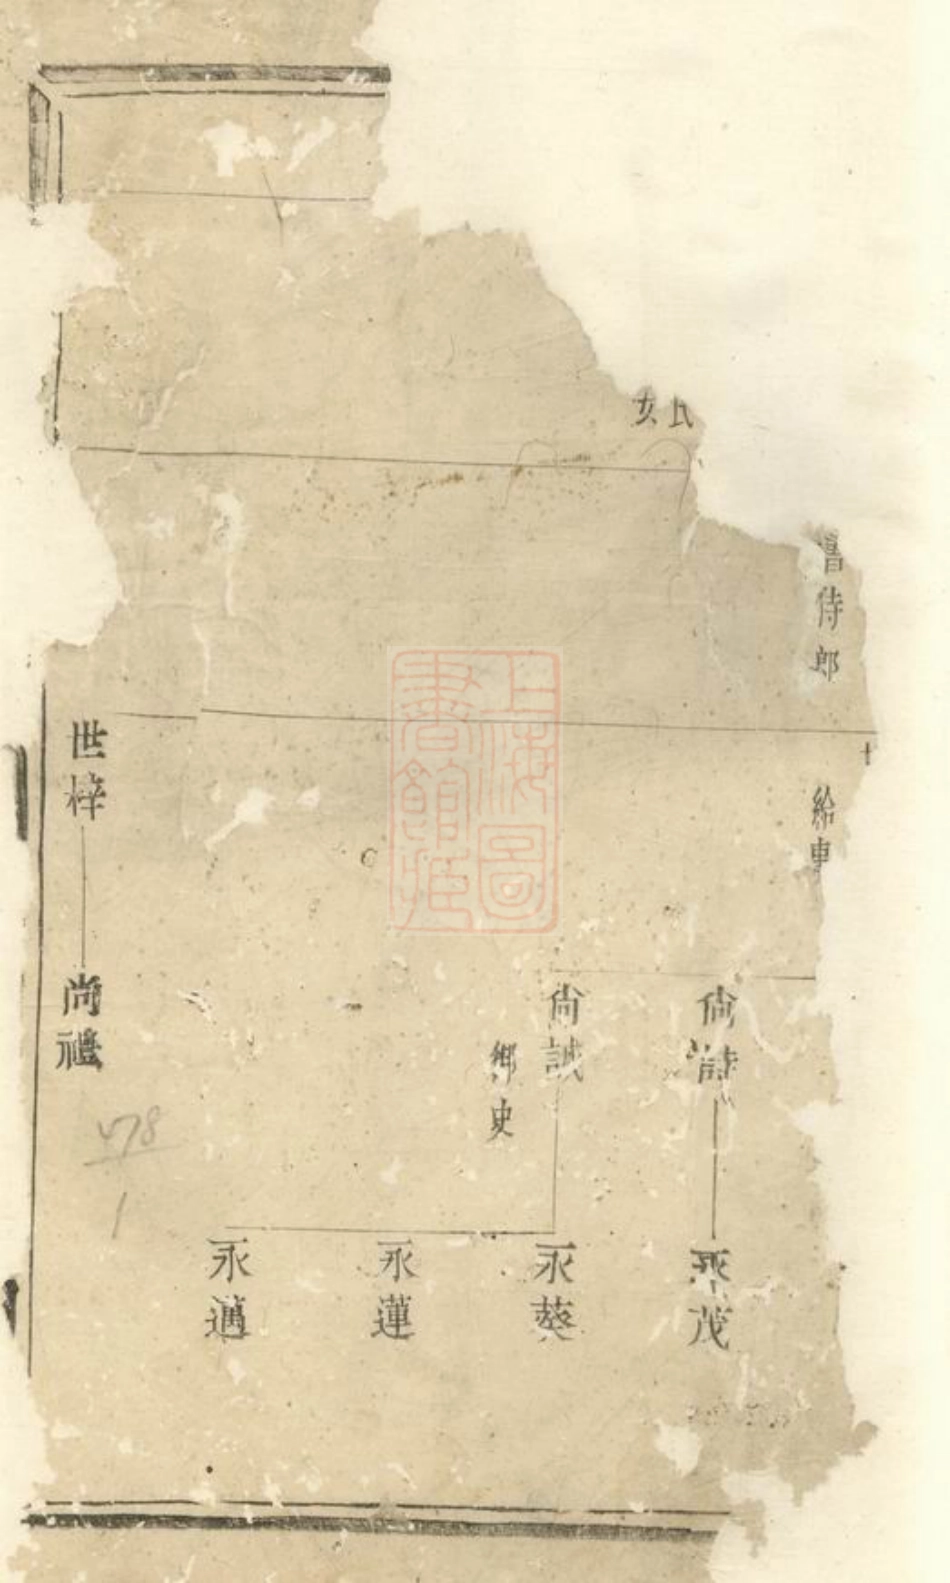 氏
女
書侍郎
給事
尚
尚誠
鄉史
世梓
尚禮
永茂
永葵
永蓮
永邁
上海圖
書館藏
478
1